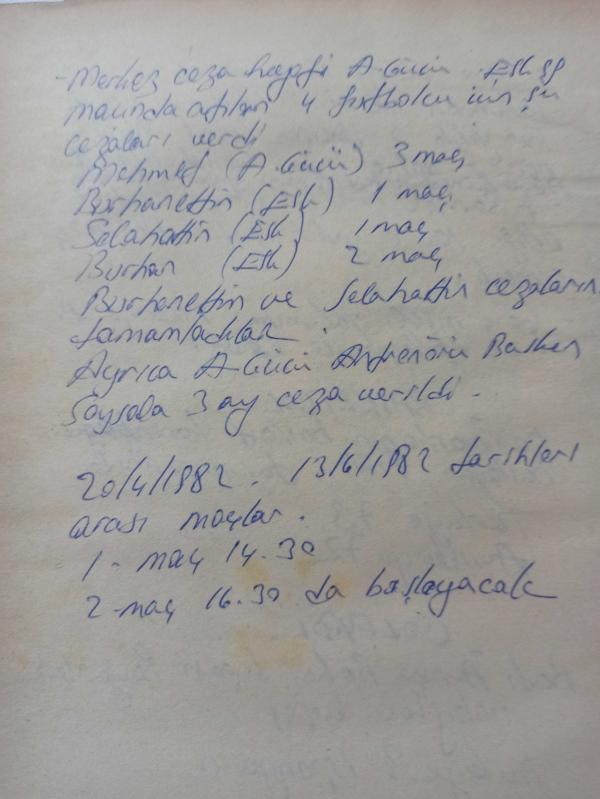 - Merkez ceza heyeti A. Gücü Esk şp
maçında atılan 4 futbolcu için şu
cezaları verdi
Mehmet (A. Gücü) 3 maç
Burhanettin (Esk) 1 maç
Selahattin (Esk) 1 maç
Burhan (Esk) 2 maç
Burhanettin ve Selahattin cezaların
tamamladılar.
Ayrıca A. Gücü Antrenörü
Soysala 3 ay ceza verildi.
20/4/1982 - 13/6/1982 tarihleri
arası maçlar.
1 - maç 14.30
2 - maç 16.30 da başlayacak